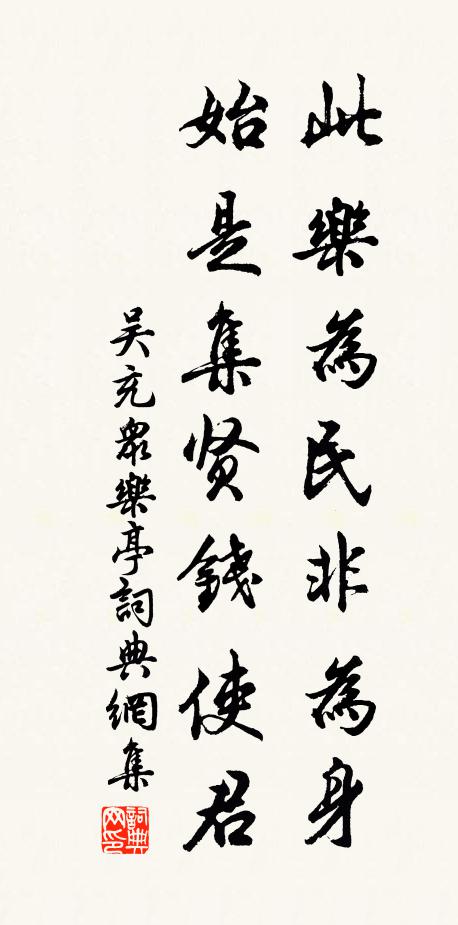 此樂為民非為身
始是集贤錢使君
吴充衆樂亭詞典網集
詞典网印